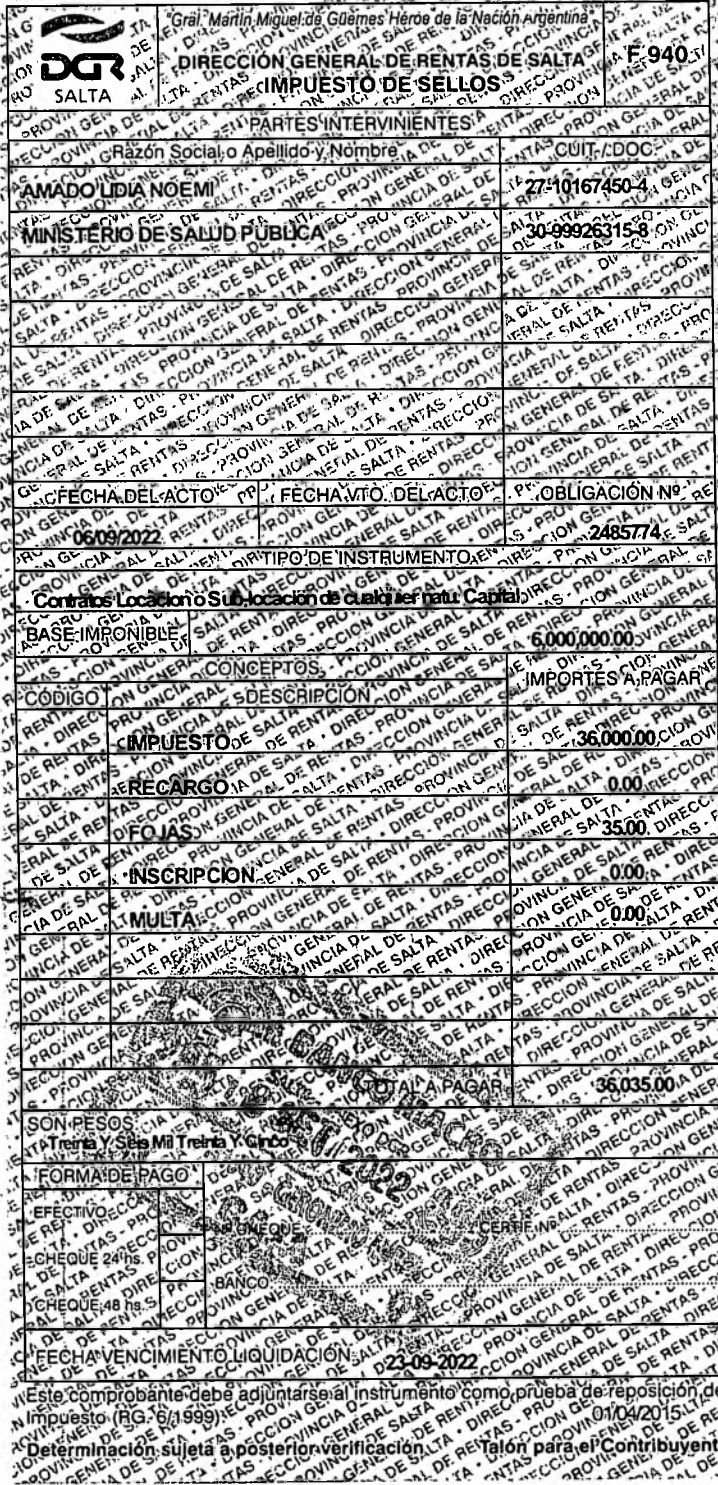 "Gral. Martín Miguel de Güemes Héroe de la Nación Argentina"
DGR
SALTA
DIRECCIÓN GENERAL DE RENTAS DE SALTA
IMPUESTO DE SELLOS
F 940
PARTES INTERVINIENTES
Razón Social o Apellido y Nombre CUIT / DOC.
AMADO LIDIA NOEMI 27-10167450-4
MINISTERIO DE SALUD PUBLICA 30-99926315-8
FECHA DEL ACTO FECHA VTO. DEL ACTO OBLIGACIÓN Nº
06/09/2022 2485774
TIPO DE INSTRUMENTO
Contratos Locacion o Sub-locación de cualquier natu. Capital
BASE IMPONIBLE 6,000,000.00
CONCEPTOS IMPORTES A PAGAR
CÓDIGO DESCRIPCIÓN
IMPUESTO 36,000.00
RECARGO 0.00
FOJAS 35.00
INSCRIPCION 0.00
MULTA 0.00
TOTAL A PAGAR 36,035.00
SON PESOS
Treinta Y Seis Mil Treinta Y Cinco
BANCO MACRO
2022
FORMA DE PAGO
EFECTIVO
CHEQUE CERTIF. Nº
CHEQUE 24 hs.
BANCO
CHEQUE 48 hs.
FECHA VENCIMIENTO LIQUIDACIÓN 23-09-2022
Este comprobante debe adjuntarse al instrumento como prueba de reposición de
Impuesto (RG. 6/1999) 01/04/2015
Determinación sujeta a posterior verificación Talón para el Contribuyent